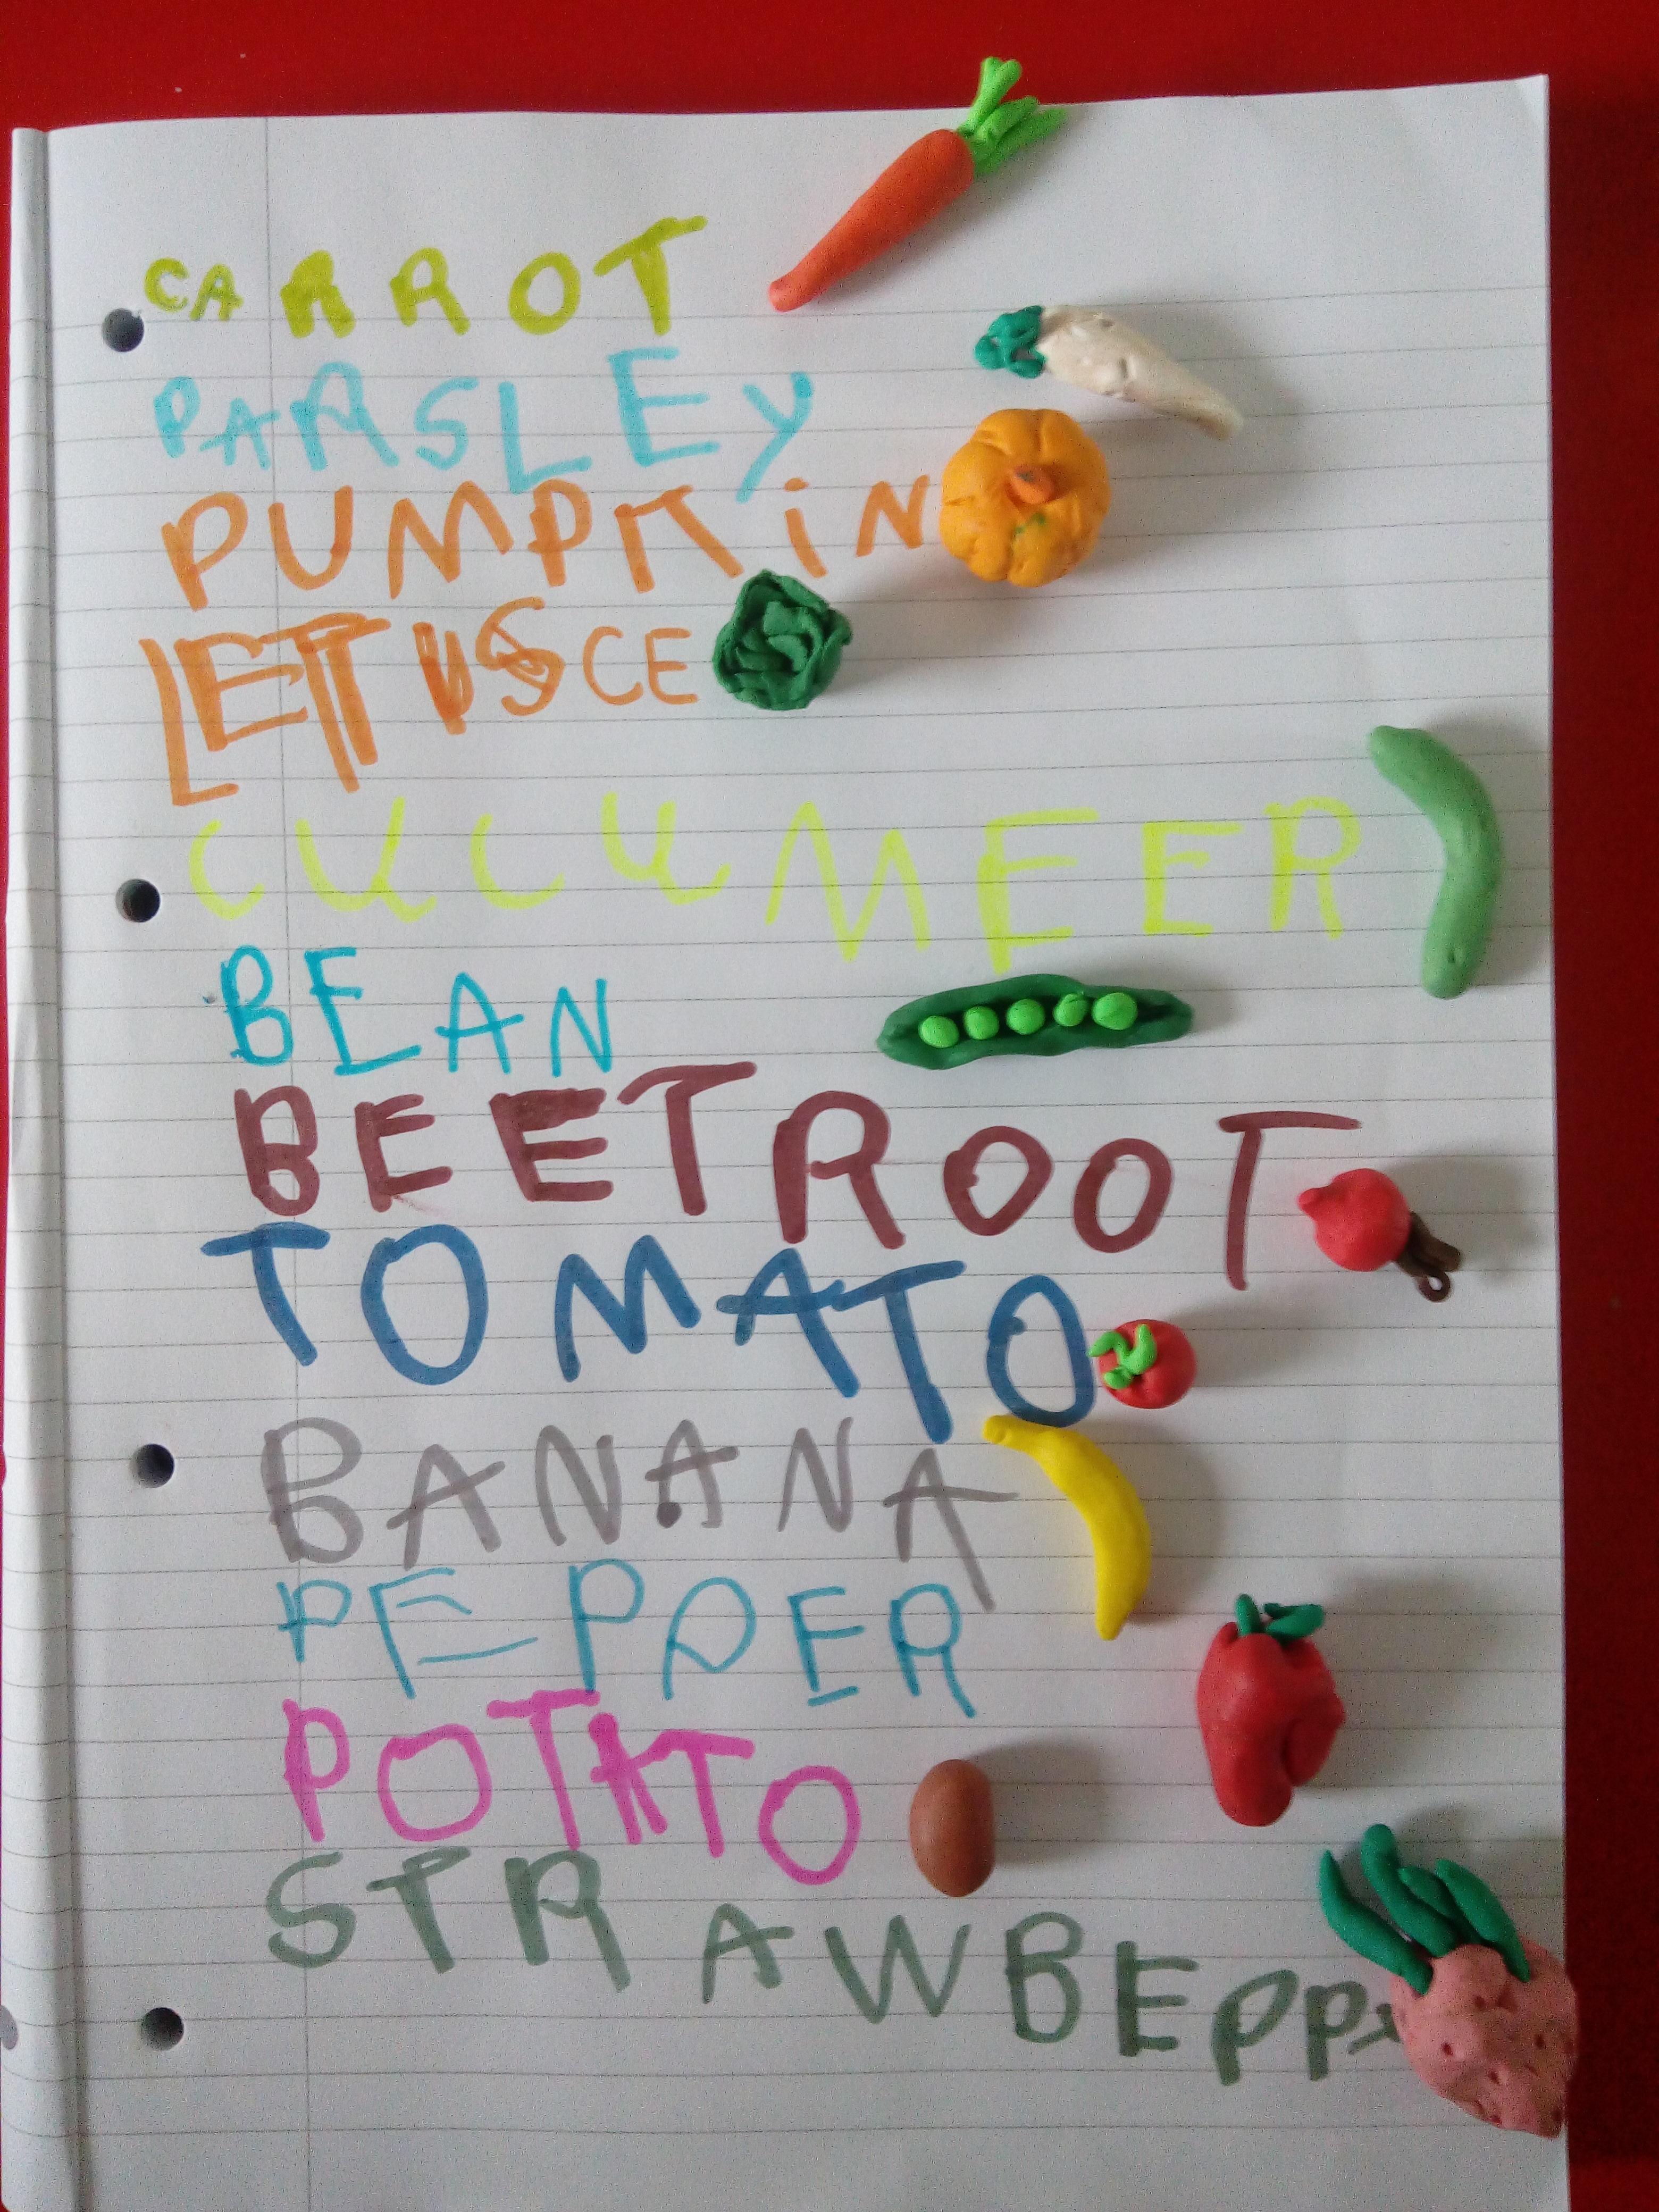 CARROT
PARSLEY
PUMPKiN
LETTUSCE
CUCUMEER
BEAN
BEETROOT
TOMATO
BANANA
PEPPER
POTATO
STRAWBEPPY